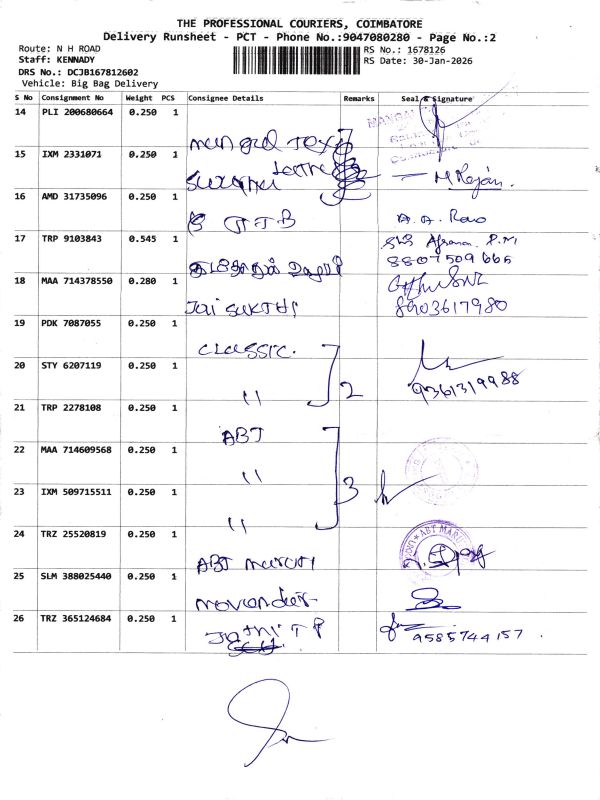 THE PROFESSIONAL COURIERS, COIMBATORE
Delivery Runsheet - PCT - Phone No.:9047080280 - Page No.:2
Route: N H ROAD
Staff: KENNADY
DRS No.: DCJB167812602
Vehicle: Big Bag Delivery
RS No.: 1678126
RS Date: 30-Jan-2026
S No Consignment No Weight PCS Consignee Details Remarks Seal & Signature
14 PLI 200680664 0.250 1
15 IXM 2331071 0.250 1
16 AMD 31735096 0.250 1 A. A. Rao
17 TRP 9103843 0.545 1 8807509665
18 MAA 714378550 0.280 1 Jai SUKTHI 8903617980
19 PDK 7087055 0.250 1 CLASSIC.
20 STY 6207119 0.250 1 " 2 9361319988
21 TRP 2278108 0.250 1 ABT
22 MAA 714609568 0.250 1 "
23 IXM 509715511 0.250 1 " 3
24 TRZ 25520819 0.250 1 ABT Maruti
25 SLM 388025440 0.250 1
26 TRZ 365124684 0.250 1 9585744157